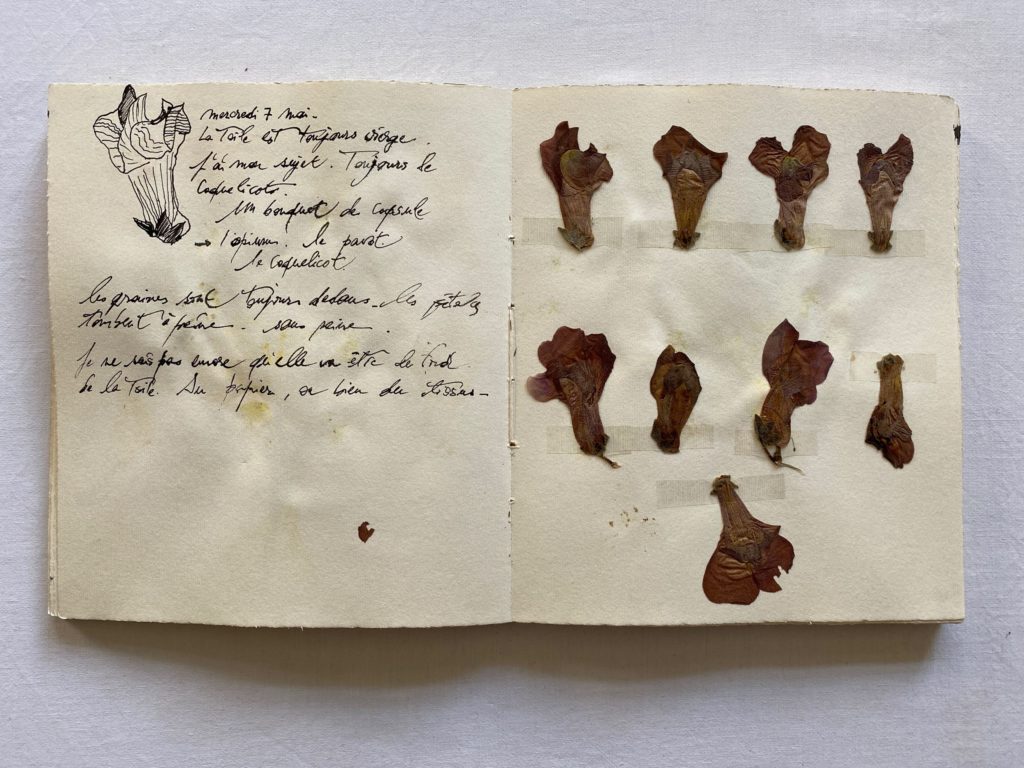 mercredi 7 mai -
La Toile est toujours vierge.
J'ai mon sujet. Toujours le
Coquelicots.
Un bouquet de capsule
→ l'opium. le pavot
le coquelicot.
les graines sont toujours dedans - les pétales
tombent à peine - sans peine.
Je ne sais pas encore qu'elle va être le fond
de la Toile. Du papier, ou bien du tissus -